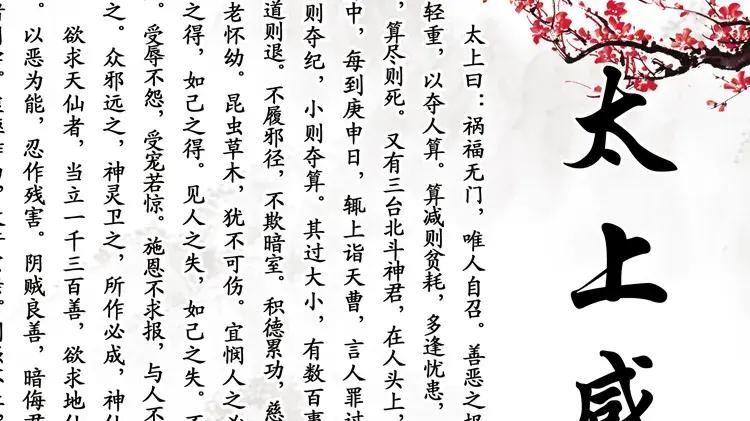 太上感
太上曰：祸福无门，唯人自召。善恶之报
轻重，以夺人算。算减则贫耗，多逢忧患，
，算尽则死。又有三台北斗神君，在人头上，
中，每到庚申日，辄上诣天曹，言人罪过
则夺纪，小则夺算。其过大小，有数百事
道则退。不履邪径，不欺暗室。积德累功，慈
老怀幼。昆虫草木，犹不可伤。宜悯人之凶
之得，如己之得。见人之失，如己之失。不
。受辱不怨，受宠若惊。施恩不求报，与人不
之。众邪远之，神灵卫之，所作必成，神仙
欲求天仙者，当立一千三百善，欲求地仙
。以恶为能，忍作残害。阴贼良善，暗侮君